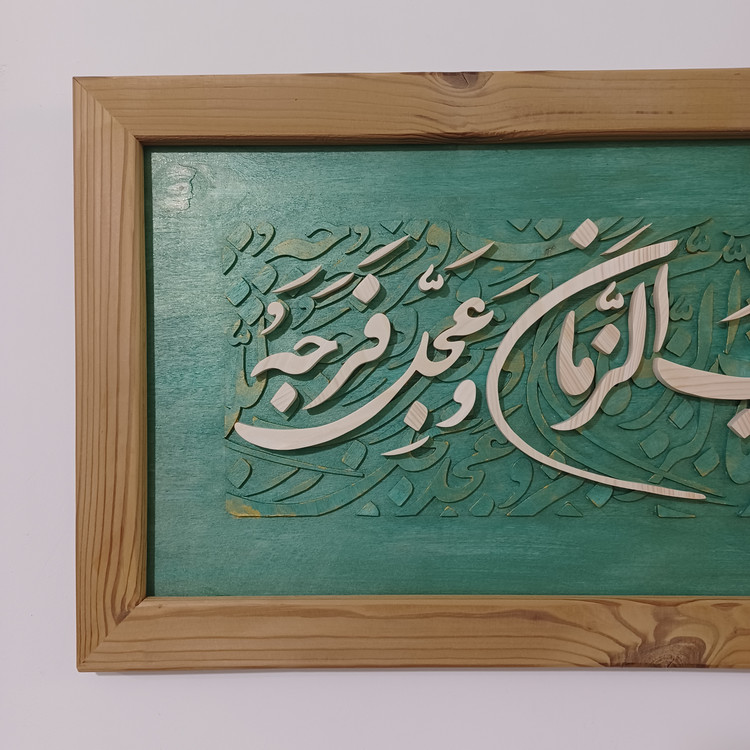 الزَّمان و عَجِّل فَرَجَهُ